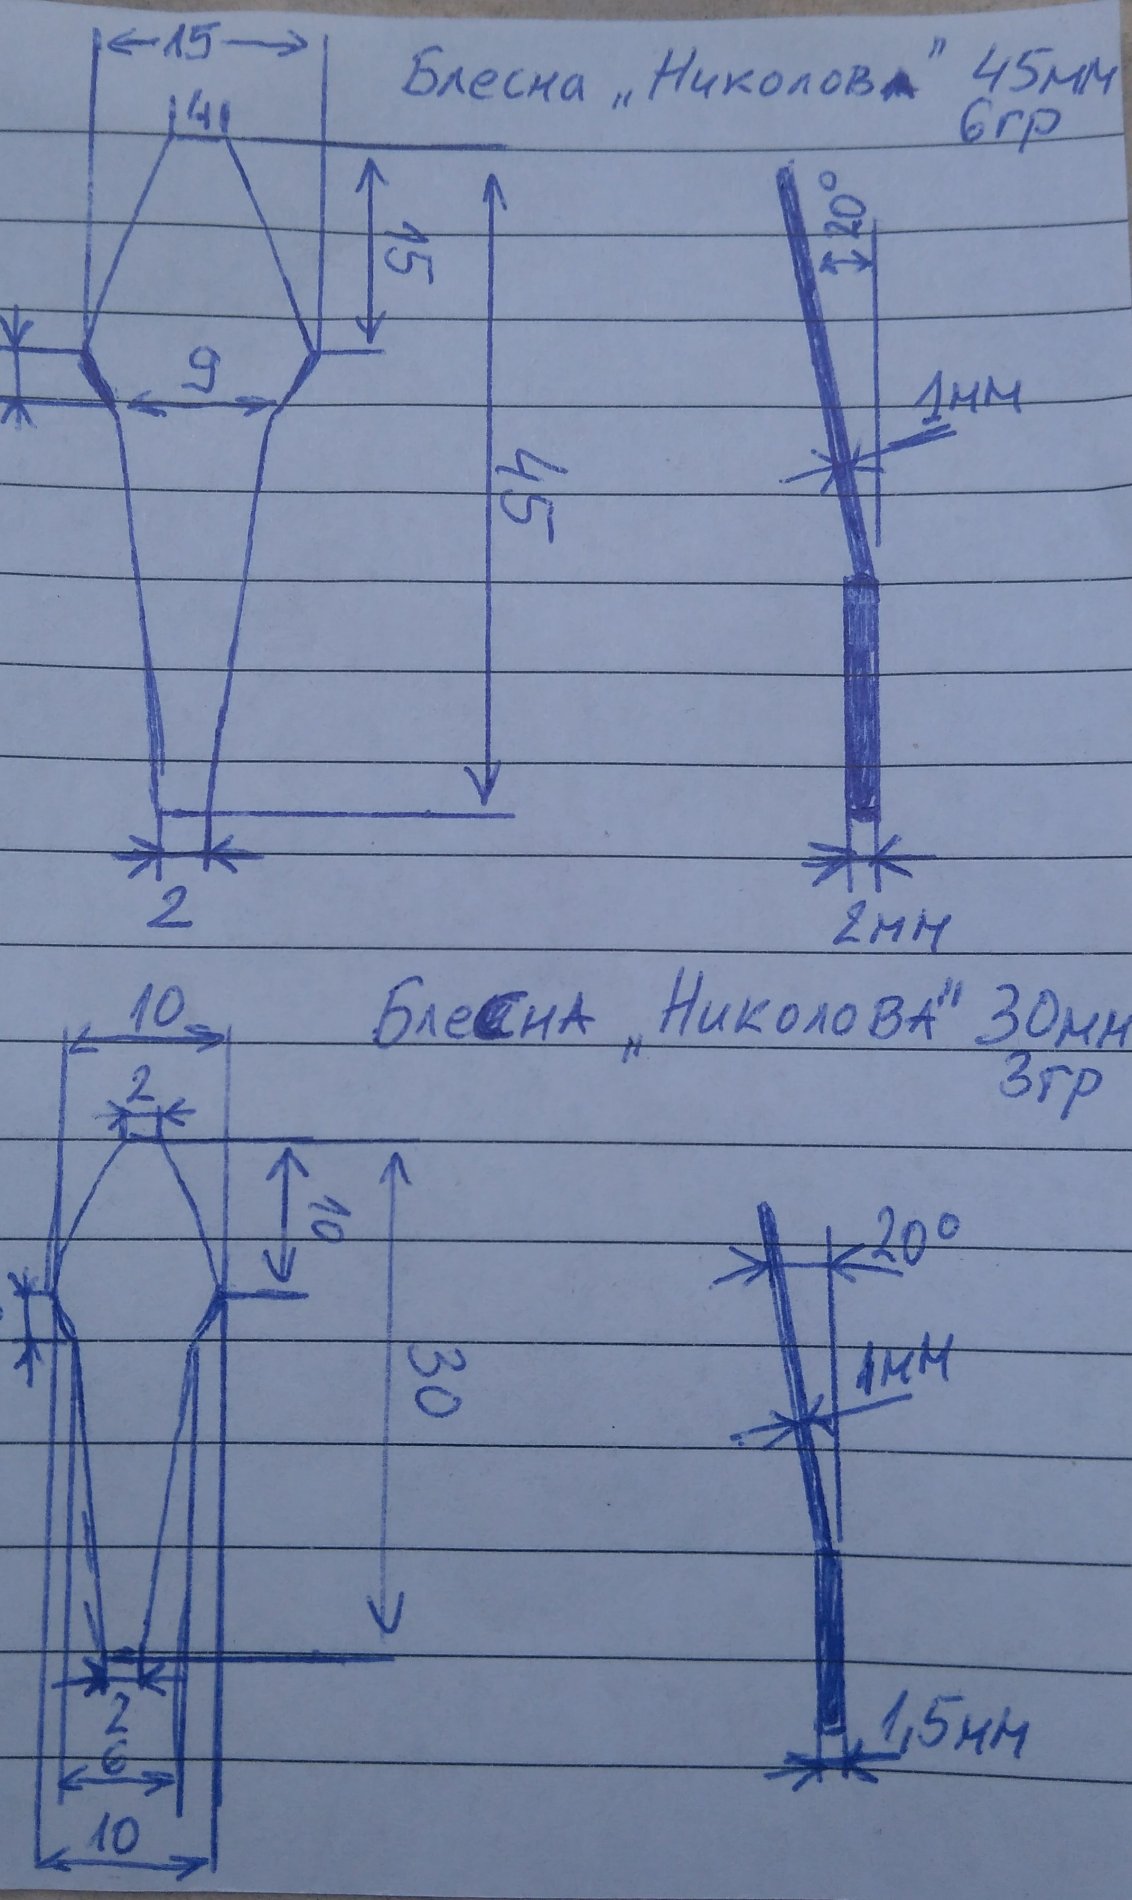 15
Блесна „Николова" 45мм
6гр
4
20°
15
9
1мм
45
2
2мм
10
Блесна „Николова" 30мм
3гр
2
10
20°
1мм
30
2
1,5мм
6
10